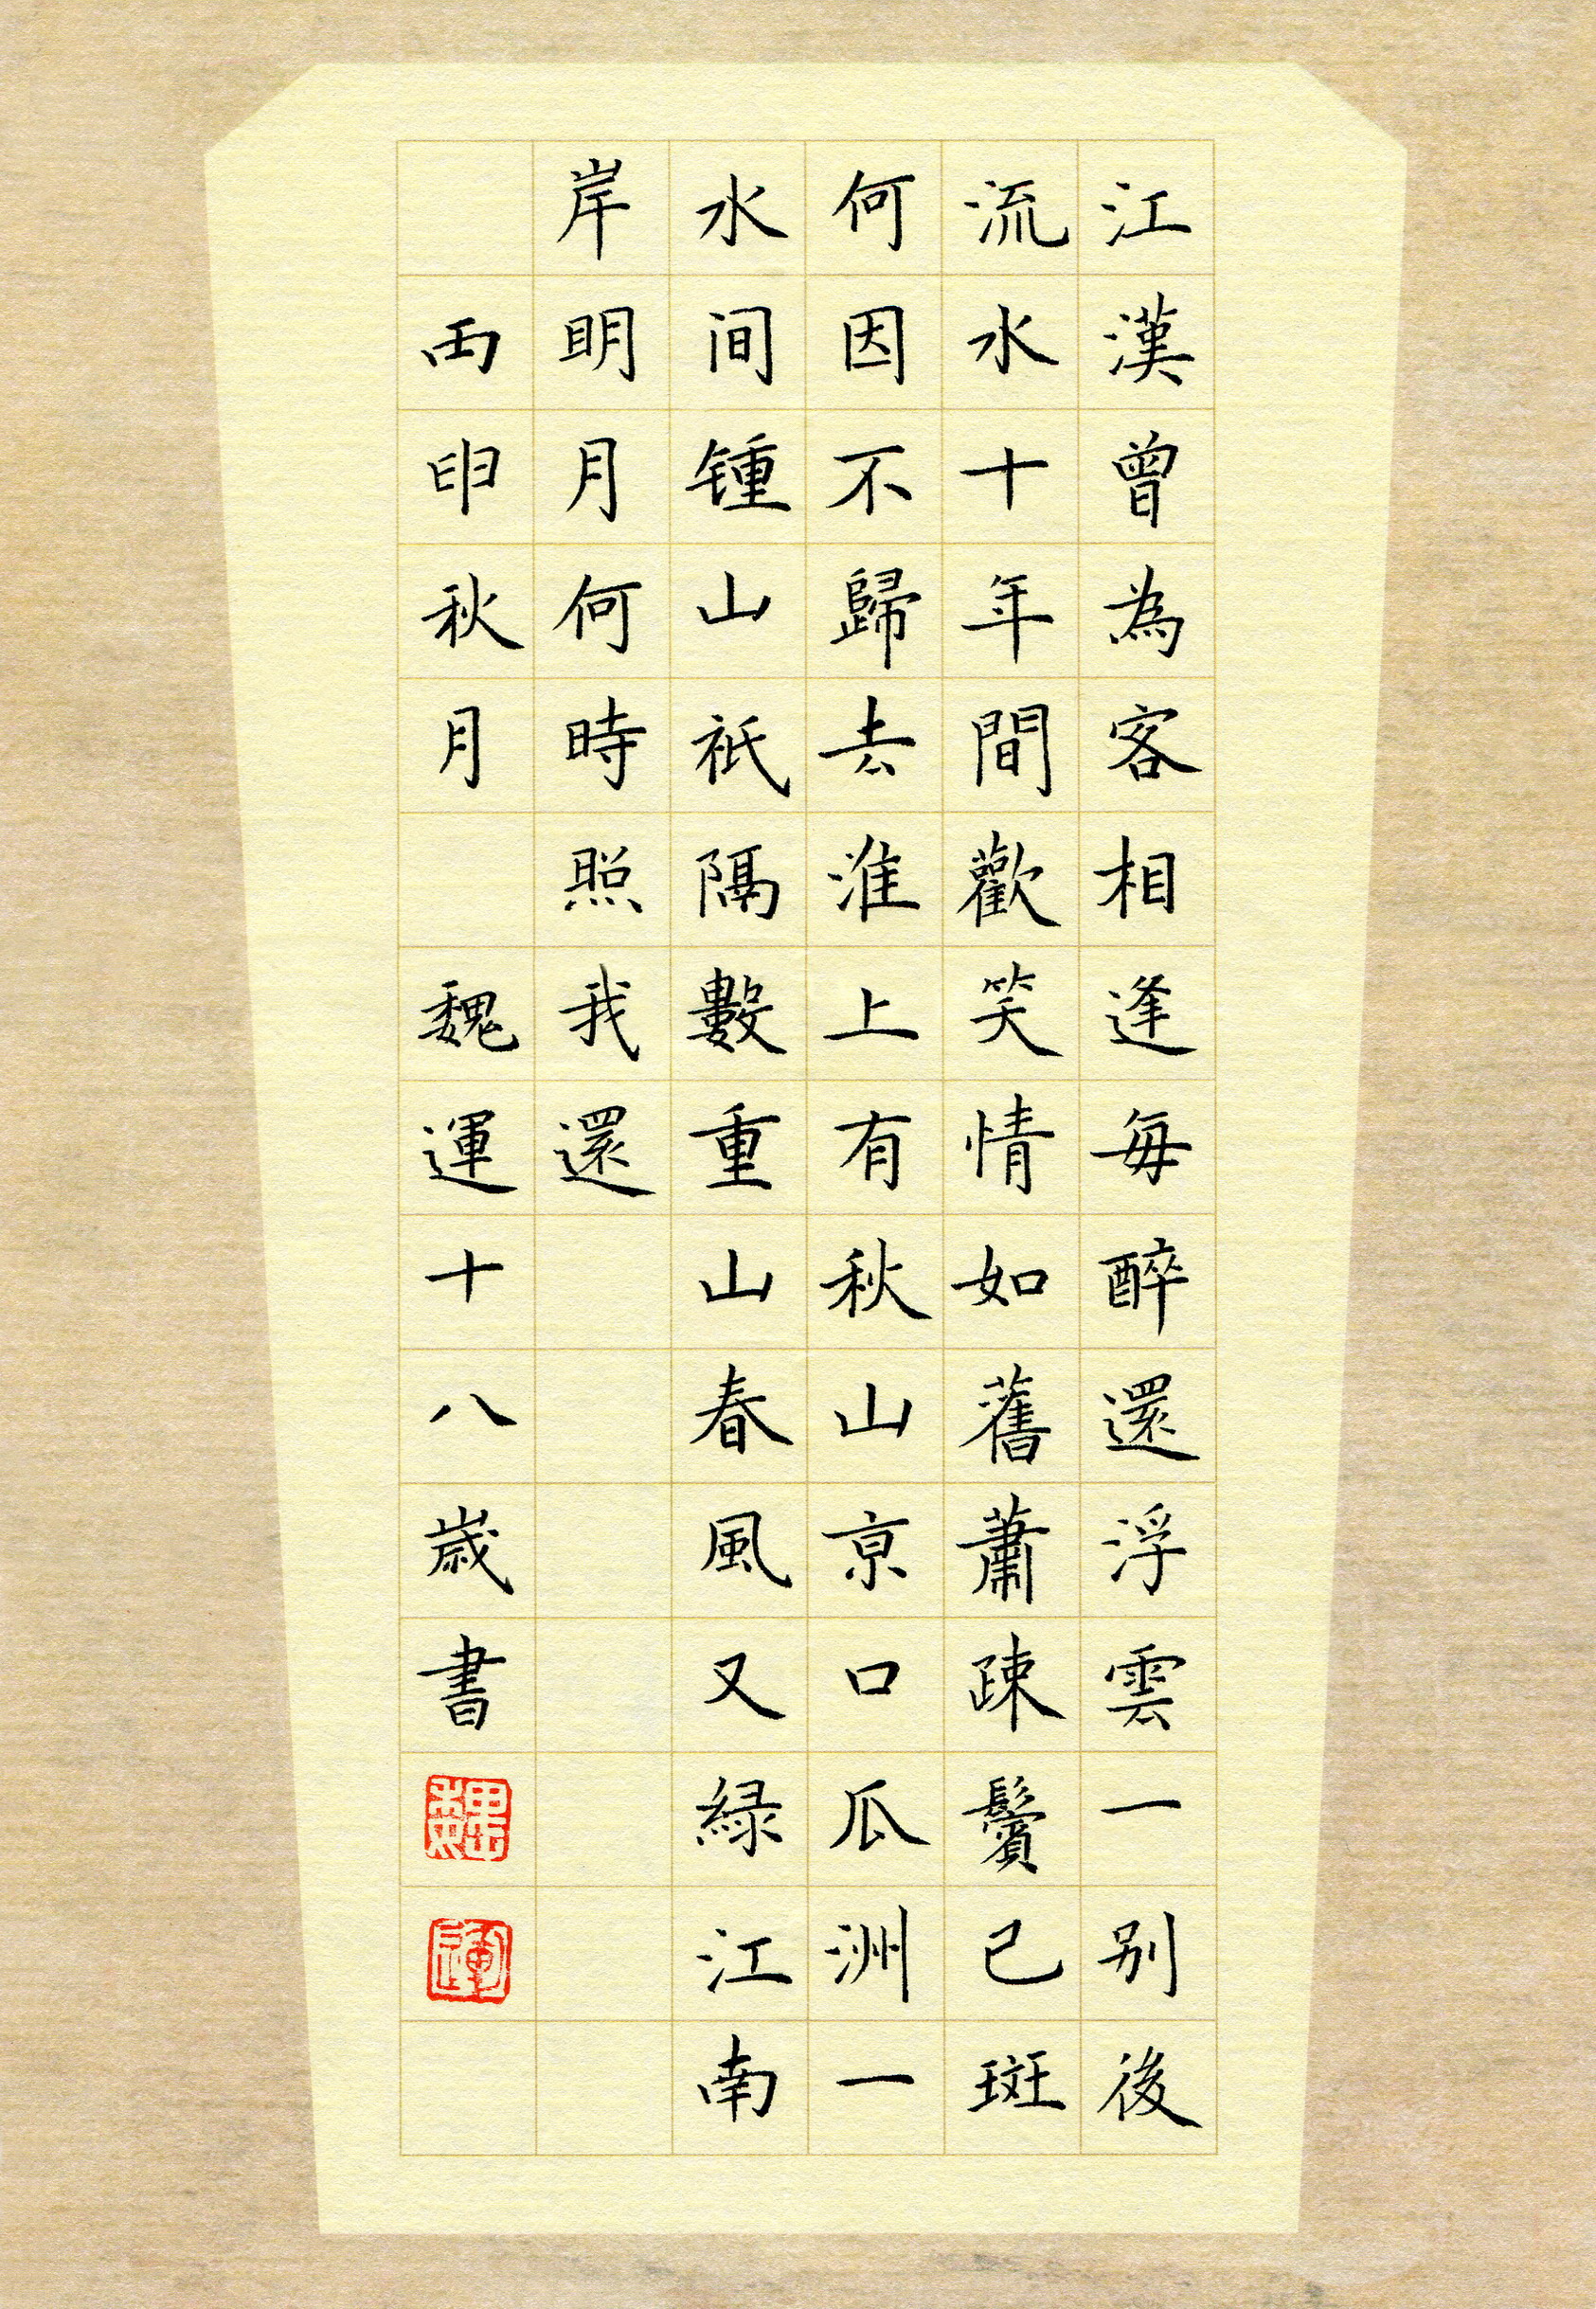 江漢曾為客相逢每醉還浮雲一别後
流水十年間歡笑情如舊蕭疎鬢已斑
何因不歸去淮上有秋山亰口瓜洲一
水间锺山祇隔數重山春風又緑江南
岸眀月何時照我還
丙申秋月 魏運十八歲書
魏
運